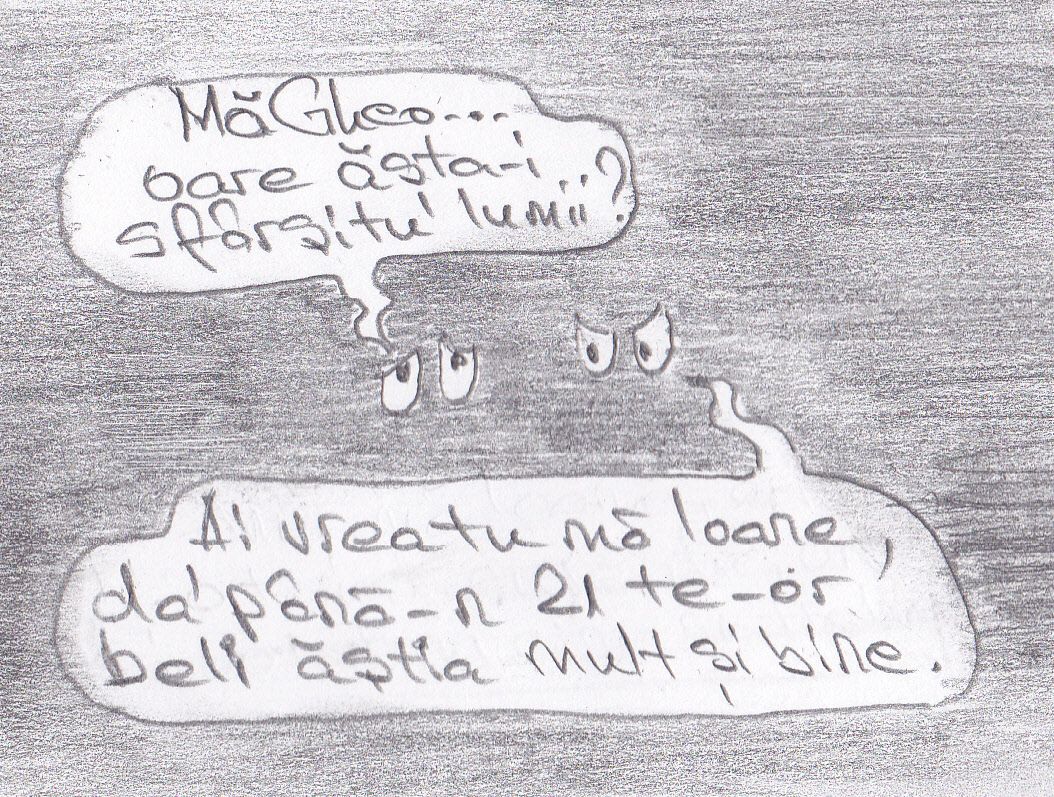 Mă Gheo...
oare ăsta-i
sfârșitu' lumii..?
Ai vrea tu mă Ioane,
da' până-n 21 te-or
beli ăștia mult și bine.